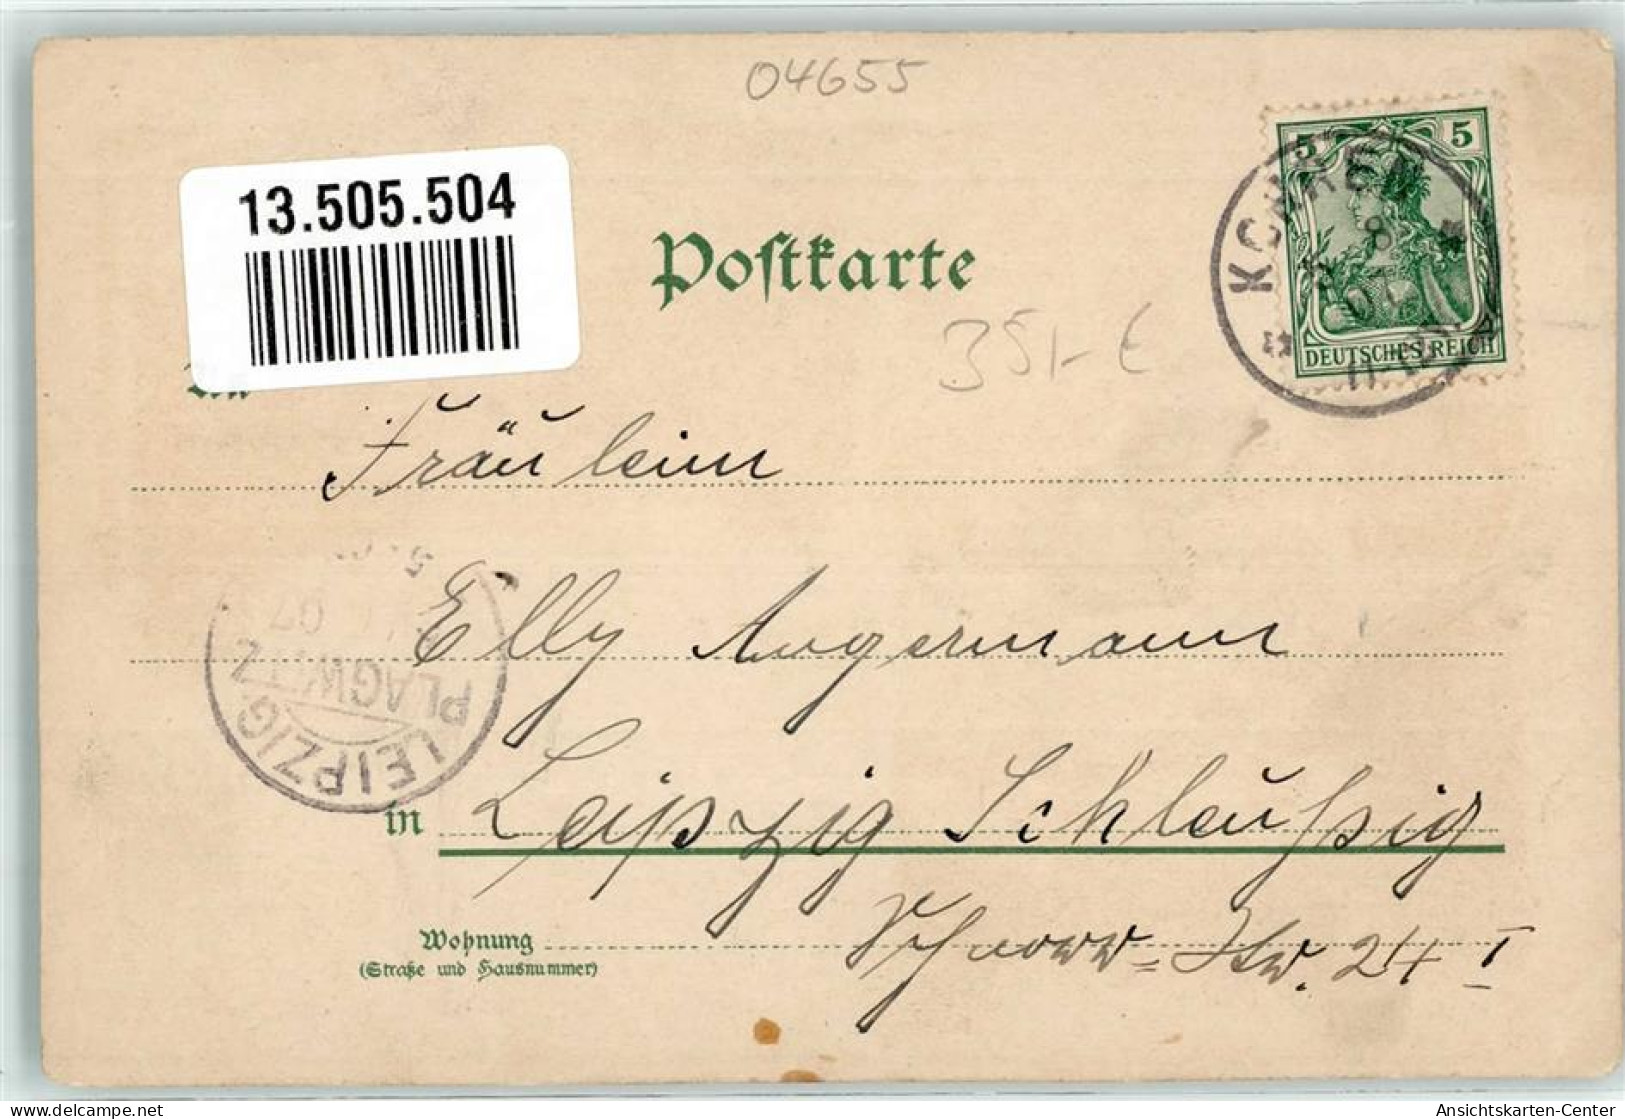 04655
13.505.504
Postkarte
5 5
KOHREN
DEUTSCHES REICH
35,- €
An
Fräulein
Elly Angermann
LEIPZIG
PLAGWITZ
07
in Leipzig Schleußig
Wohnung
(Straße und Hausnummer)
Schnorr-Str. 24 I
www.ansichtskarten-center.de
Ansichtskarten-Center